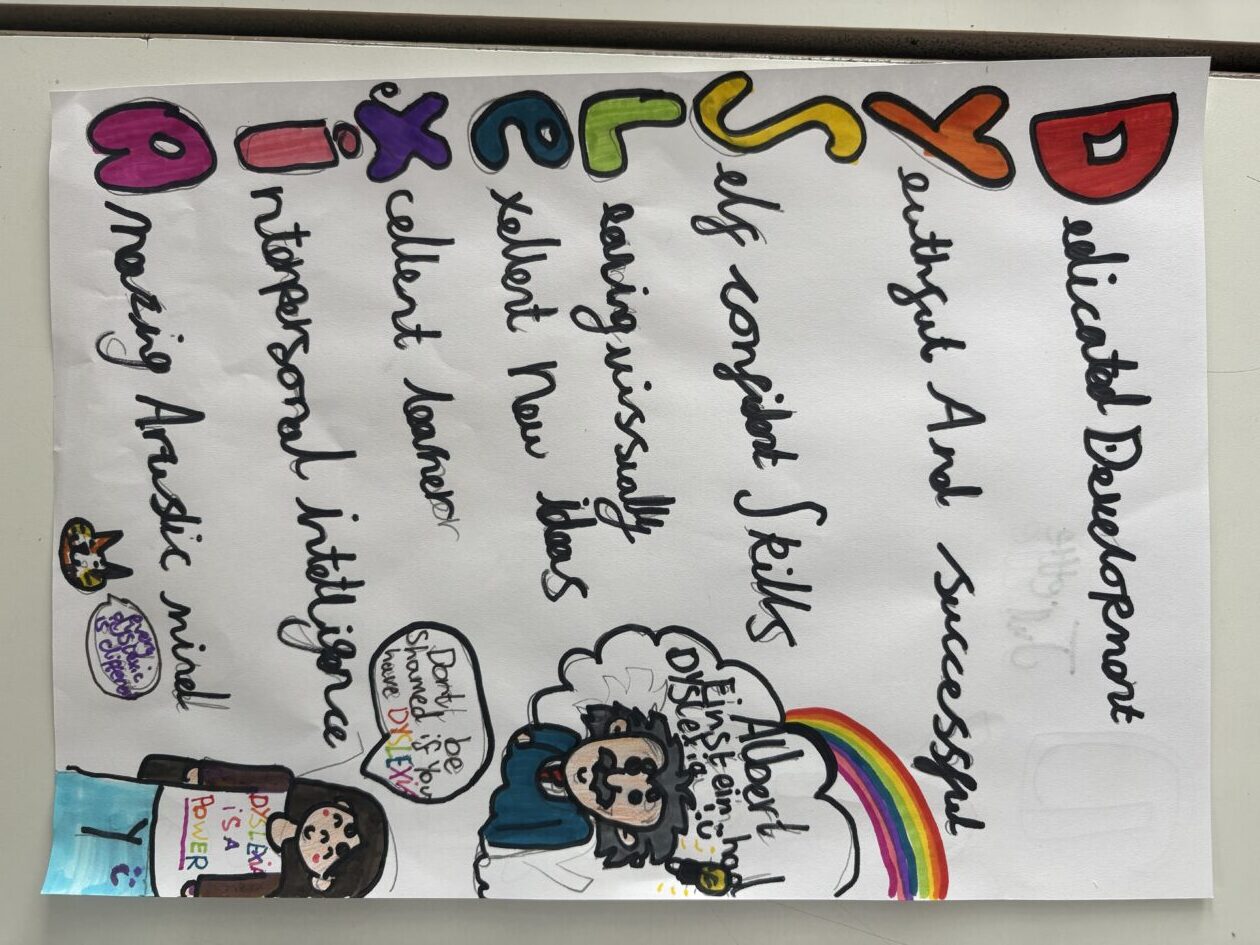 Dedicated Development
Yeuthful And successful
Self confident Skills
Learing vissually
exellent New ideas
eXcellent learner
interpersonal intelligence
Amazing Artistic mind
Albert
Einstein had
DYSLEXIA :)
Dont be
shamed if you
have DYSLEXiA
DYSLEXiA
iS A
POWER
every
dyslexic
is different